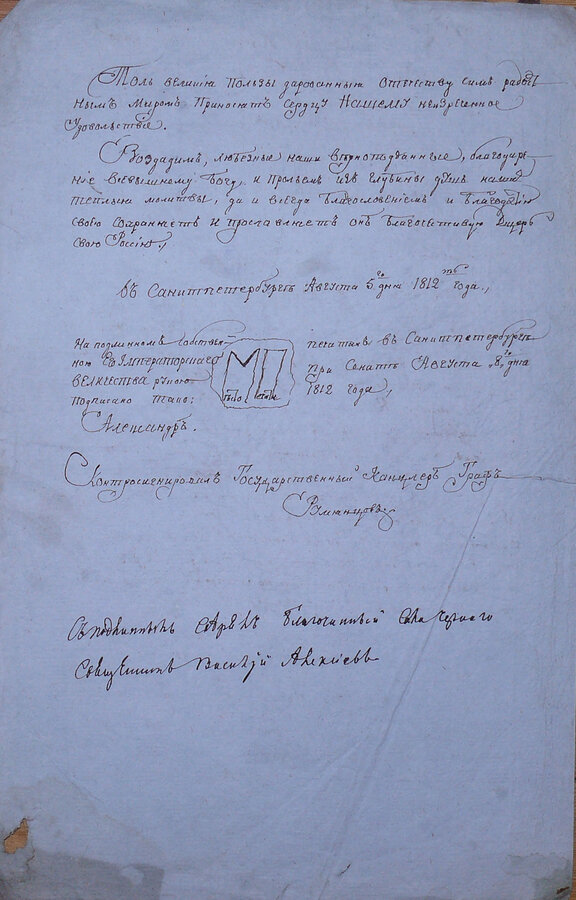 Толь великія пользы дарованныя отечеству симъ радост
нымъ миромъ Приносятъ Сердцу Нашему неизреченное
Удовольствіе.
Воздадимъ, любезные наши вѣрноподданные, благодаре
ніе всевышнему Богу, и прольемъ изъ глубины душъ нашихъ
теплыя молитвы, да и всегда благословеніемъ и благодатію
своею сохраняетъ и прославляетъ онъ благочестивую
свою Россію,,
въ Санктпетербургѣ Августа 5го дня 1812го года.,
На подлинномъ собствен-
ною Его Императорскаго
величества рукою
подписано тако:
Александръ.
МП
печатанъ въ Санктпетербургѣ
при Сенатѣ Августа 8го дня
1812 года,
Контросигнировалъ Государственный Канцлеръ Графъ
Румянцовъ
Съ подлиннымъ вѣренъ Благочинный
Священникъ Василій Алексіевъ